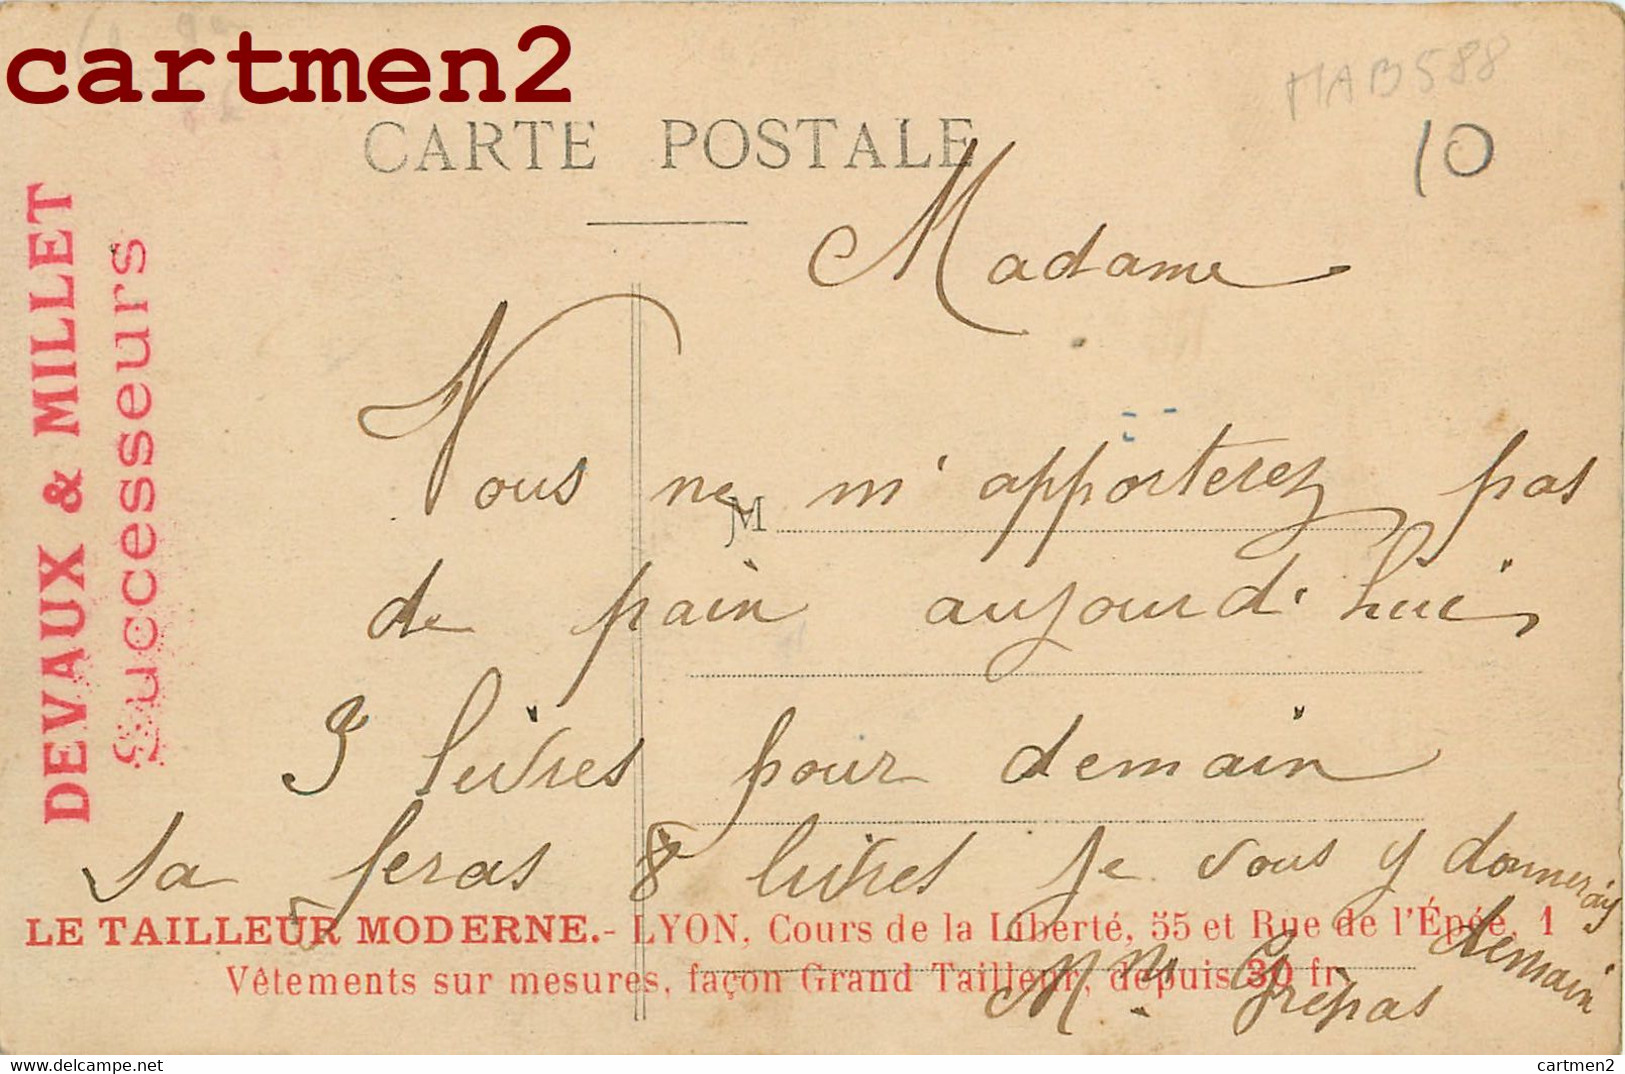 cartmen2
MAB588
10
CARTE POSTALE
Madame
Vous ne m'apporterez pas
M
de pain aujourd'hui
3 livres pour demain
sa feras 8 livres je vous y donnerais
demain
Mme Grépas
DEVAUX & MILLET
Successeurs
LE TAILLEUR MODERNE.- LYON, Cours de la Liberté, 55 et Rue de l'Épée, 1
Vêtements sur mesures, façon Grand Tailleur, depuis 30 fr.
cartmen2